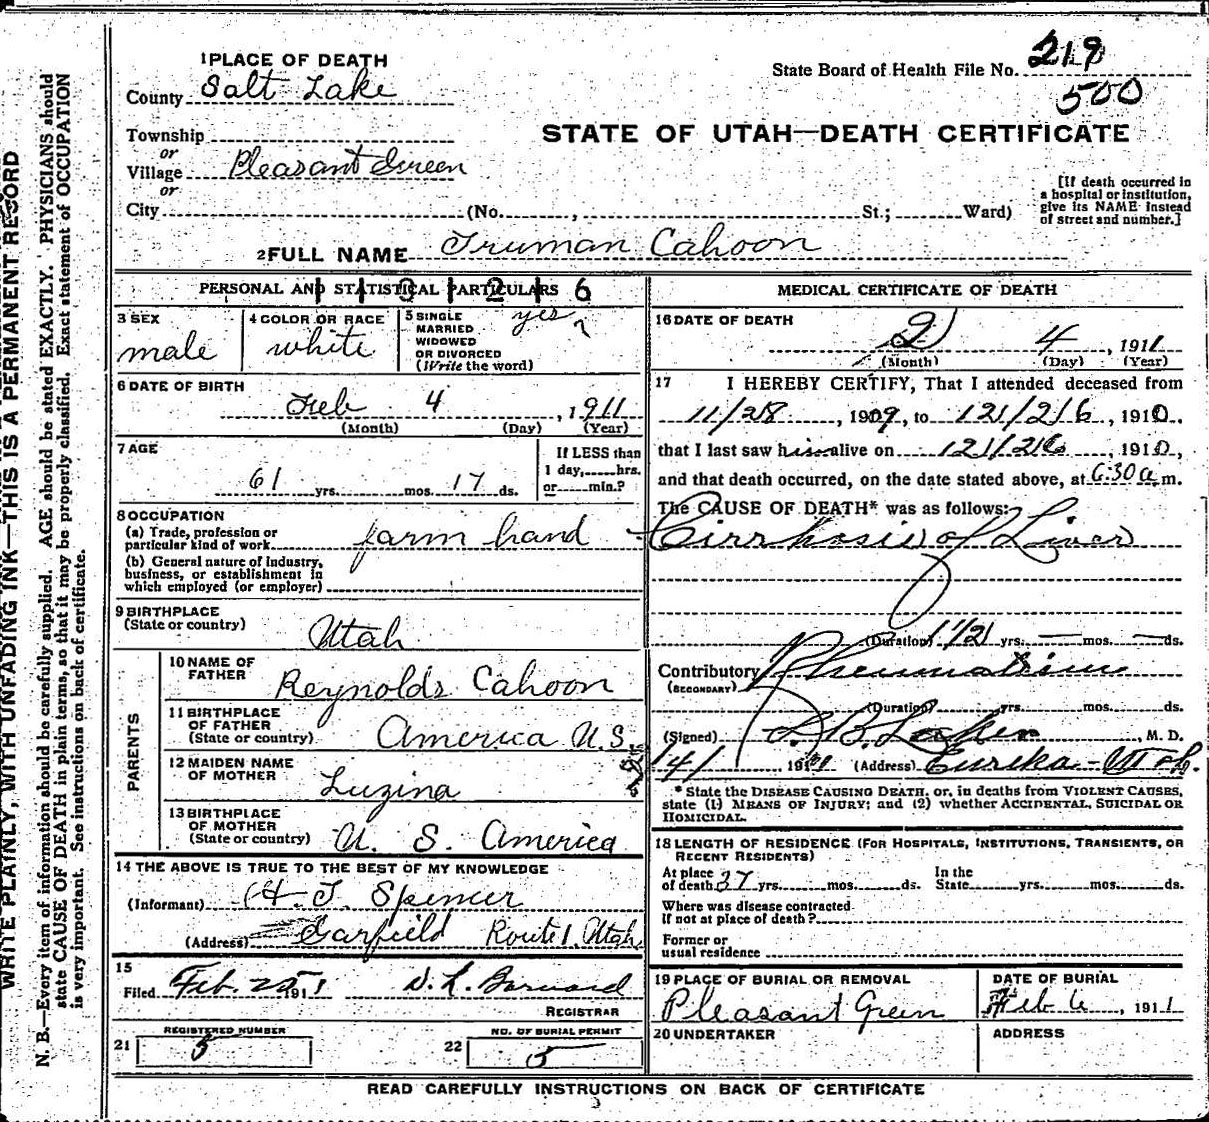 WRITE PLAINLY, WITH UNFADING INK—THIS IS A PERMANENT RECORD
N. B.—Every item of information should be carefully supplied. AGE should be stated EXACTLY. PHYSICIANS should
state CAUSE OF DEATH in plain terms, so that it may be properly classified. Exact statement of OCCUPATION
is very important. See instructions on back of certificate.
1 PLACE OF DEATH
County Salt Lake
Township
or
Village Pleasant Green
or
City (No. , St.; Ward)
State Board of Health File No. 219
500
STATE OF UTAH—DEATH CERTIFICATE
[If death occurred in
a hospital or institution,
give its NAME instead
of street and number.]
2 FULL NAME Truman Cahoon
PERSONAL AND STATISTICAL PARTICULARS
3 SEX
male
4 COLOR OR RACE
white
5 SINGLE
MARRIED
WIDOWED
OR DIVORCED
(Write the word)
yes
?
6 DATE OF BIRTH
Feb 4, 1911
(Month) (Day) (Year)
7 AGE
61 yrs. mos. 17 ds.
If LESS than
1 day, hrs.
or min.?
8 OCCUPATION
(a) Trade, profession or
particular kind of work farm hand
(b) General nature of Industry,
business, or establishment in
which employed (or employer)
9 BIRTHPLACE
(State or country)
Utah
PARENTS
10 NAME OF
FATHER
Reynolds Cahoon
11 BIRTHPLACE
OF FATHER
(State or country) America U.S.
12 MAIDEN NAME
OF MOTHER
Luzina
13 BIRTHPLACE
OF MOTHER
(State or country) U. S. America
14 THE ABOVE IS TRUE TO THE BEST OF MY KNOWLEDGE
(Informant) H. T. Spencer
(Address) Garfield Route 1, Utah
15
Filed Feb. 25 1911
REGISTRAR
REGISTERED NUMBER
21 5
NO. OF BURIAL PERMIT
22 5
MEDICAL CERTIFICATE OF DEATH
16 DATE OF DEATH
2 4, 1911
(Month) (Day) (Year)
17 I HEREBY CERTIFY, That I attended deceased from
11/28, 1909, to 12/26, 1910,
that I last saw him alive on 12/26, 1910,
and that death occurred, on the date stated above, at 6:30 a m.
The CAUSE OF DEATH* was as follows:
Cirrhosis of Liver
(Duration) 1 1/2 yrs. — mos. — ds.
Contributory Rheumatism
(SECONDARY)
(Duration) yrs. mos. ds.
(Signed) M. D.
191 (Address) Eureka—Utah.
* State the DISEASE CAUSING DEATH, or, in deaths from VIOLENT CAUSES,
state (1) MEANS OF INJURY; and (2) whether ACCIDENTAL, SUICIDAL OR
HOMICIDAL.
18 LENGTH OF RESIDENCE (FOR HOSPITALS, INSTITUTIONS, TRANSIENTS, OR
RECENT RESIDENTS)
At place In the
of death 37 yrs. mos. ds. State yrs. mos. ds.
Where was disease contracted
if not at place of death?
Former or
usual residence
19 PLACE OF BURIAL OR REMOVAL
Pleasant Green
DATE OF BURIAL
Feb 6, 1911
20 UNDERTAKER
ADDRESS
READ CAREFULLY INSTRUCTIONS ON BACK OF CERTIFICATE